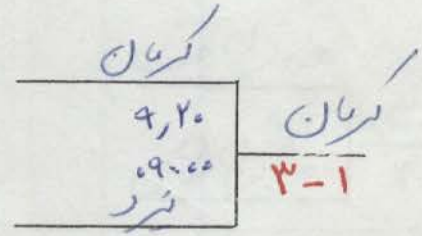 کرمان
۹,۲۰
۰۹:۰۰
یزد
کرمان
۳-۱